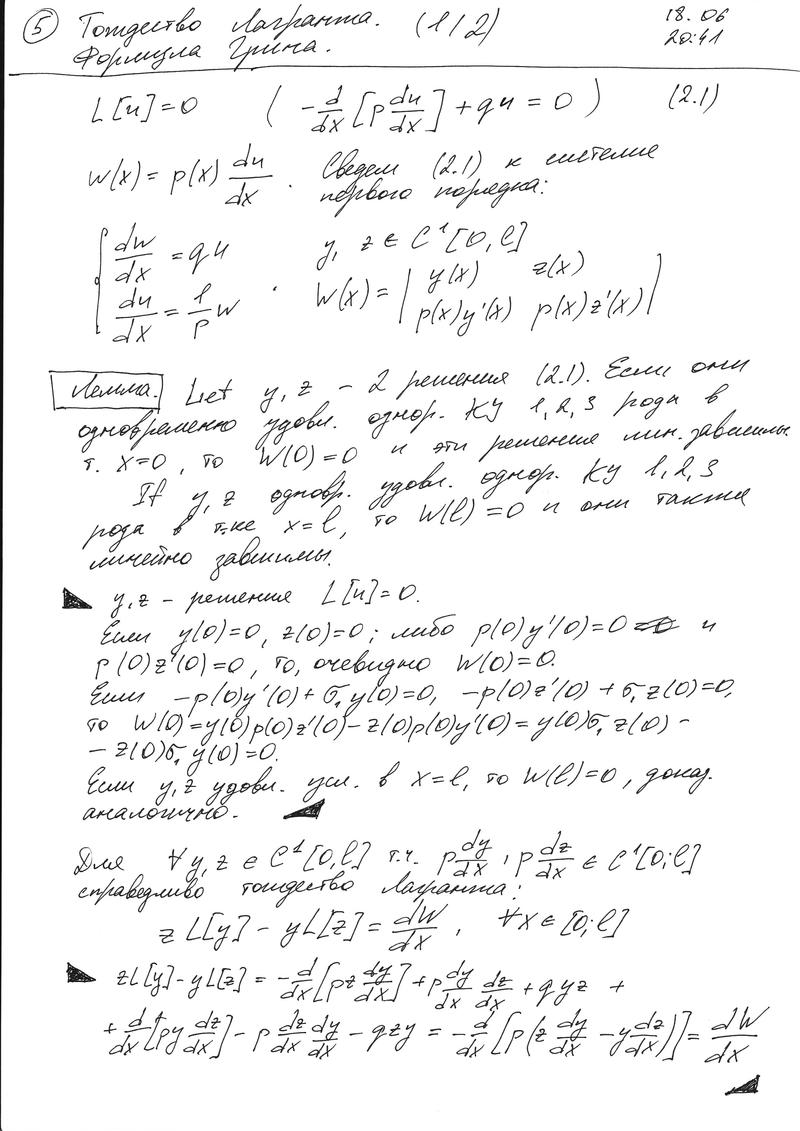 ⑤ Тождество Лагранжа. (1/2) 18.06
Формула Грина. 20:41
L[u]=0 ( -d/dx [p du/dx] + qu = 0 ) (2.1)
w(x) = p(x) du/dx . Сведем (2.1) к системе
первого порядка:
{ dw/dx = qu y, z ∈ C¹[0,l]
du/dx = 1/p w . W(x) = | y(x) z(x) |
| p(x)y'(x) p(x)z'(x) |
Лемма. Let y, z – 2 решения (2.1). Если они
одновременно удовл. однор. КУ 1,2,3 рода в
т. x=0, то W(0)=0 и эти решения лин. зависимы.
If y, z одновр. удовл. однор. КУ 1,2,3
рода в т-ке x=l, то W(l)=0 и они также
линейно зависимы.
y,z – решения L[u]=0.
Если y(0)=0, z(0)=0; либо p(0)y'(0)=0 и
p(0)z'(0)=0, то, очевидно W(0)=0.
Если -p(0)y'(0)+σ₁y(0)=0, -p(0)z'(0)+σ₁z(0)=0,
то W(0)=y(0)p(0)z'(0)-z(0)p(0)y'(0)=y(0)σ₁z(0)-
-z(0)σ₁y(0)=0.
Если y,z удовл. усл. в x=l, то W(l)=0, доказ.
аналогично.
Для ∀ y,z ∈ C¹[0,l] т.ч. p dy/dx, p dz/dx ∈ C¹[0;l]
справедливо тождество Лагранжа:
zL[y] - yL[z] = dW/dx, ∀x∈[0;l]
zL[y]-yL[z] = -d/dx [pz dy/dx] + p dy/dx dz/dx + qyz +
+ d/dx [py dz/dx] - p dz/dx dy/dx - qzy = -d/dx [p(z dy/dx - y dz/dx)] = dW/dx